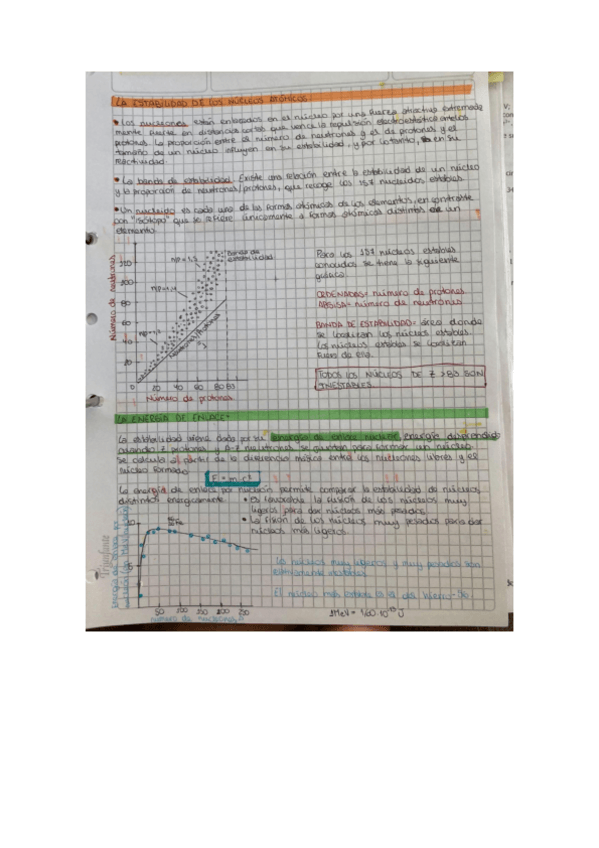 LA ESTABILIDAD DE LOS NÚCLEOS ATÓMICOS
• Los nucleones están enlazados en el núcleo por una fuerza atractiva extremada
mente fuerte en distancias cortas que vence la repulsión electroestática entre los
protones. La proporción entre el número de neutrones y el de protones y el
tamaño de un núcleo influyen en su estabilidad, y por lo tanto, en su
reactividad.
• La banda de estabilidad. Existe una relación entre la estabilidad de un núcleo
y la proporción de neutrones/protones, que recoge los 157 nucleidos estables.
• Un nucleido es cada una de las formas atómicas de los elementos, en contraste
con "isótopo" que se refiere únicamente a formas atómicas distintas de un
elemento.
Número de neutrones
120
100
80
60
40
20
0
n/p = 1,5
n/p = 1,4
Banda de
estabilidad
Neutrones/Protones
20 40 60 80 83
Número de protones
Para los 157 núcleos estables
conocidos se tiene la siguiente
gráfica:
ORDENADAS= número de protones
ABCISA= número de neutrones
BANDA DE ESTABILIDAD= área donde
se localizan los núcleos estables.
Los núcleos estables se localizan
fuera de esa.
TODOS LOS NÚCLEOS DE Z > 83 SON
INESTABLES
LA ENERGÍA DE ENLACE
La estabilidad viene dada por su energía de enlace nuclear, energía desprendida
cuando Z protones y A-Z neutrones se juntan para formar un núcleo.
se calcula al partir de la diferencia másica entre los nucleones libres y el
núcleo formado
E = m·c²
La energía de enlace por nucleón permite comparar la estabilidad de núcleos
distintos energicamente.
• Es favorable la fusión de los núcleos muy
ligeros para dar núcleos más pesados.
• La fisión de los núcleos muy pesados para dar
núcleos más ligeros.
Energía de enlace por
10
5
Fe
50 100 150 200 250
número de nucleones
Triunfante
Los núcleos muy ligeros y muy pesados son
El núcleo más estable es el del hierro-56
1MeV = 1,60 · 10⁻¹³ J